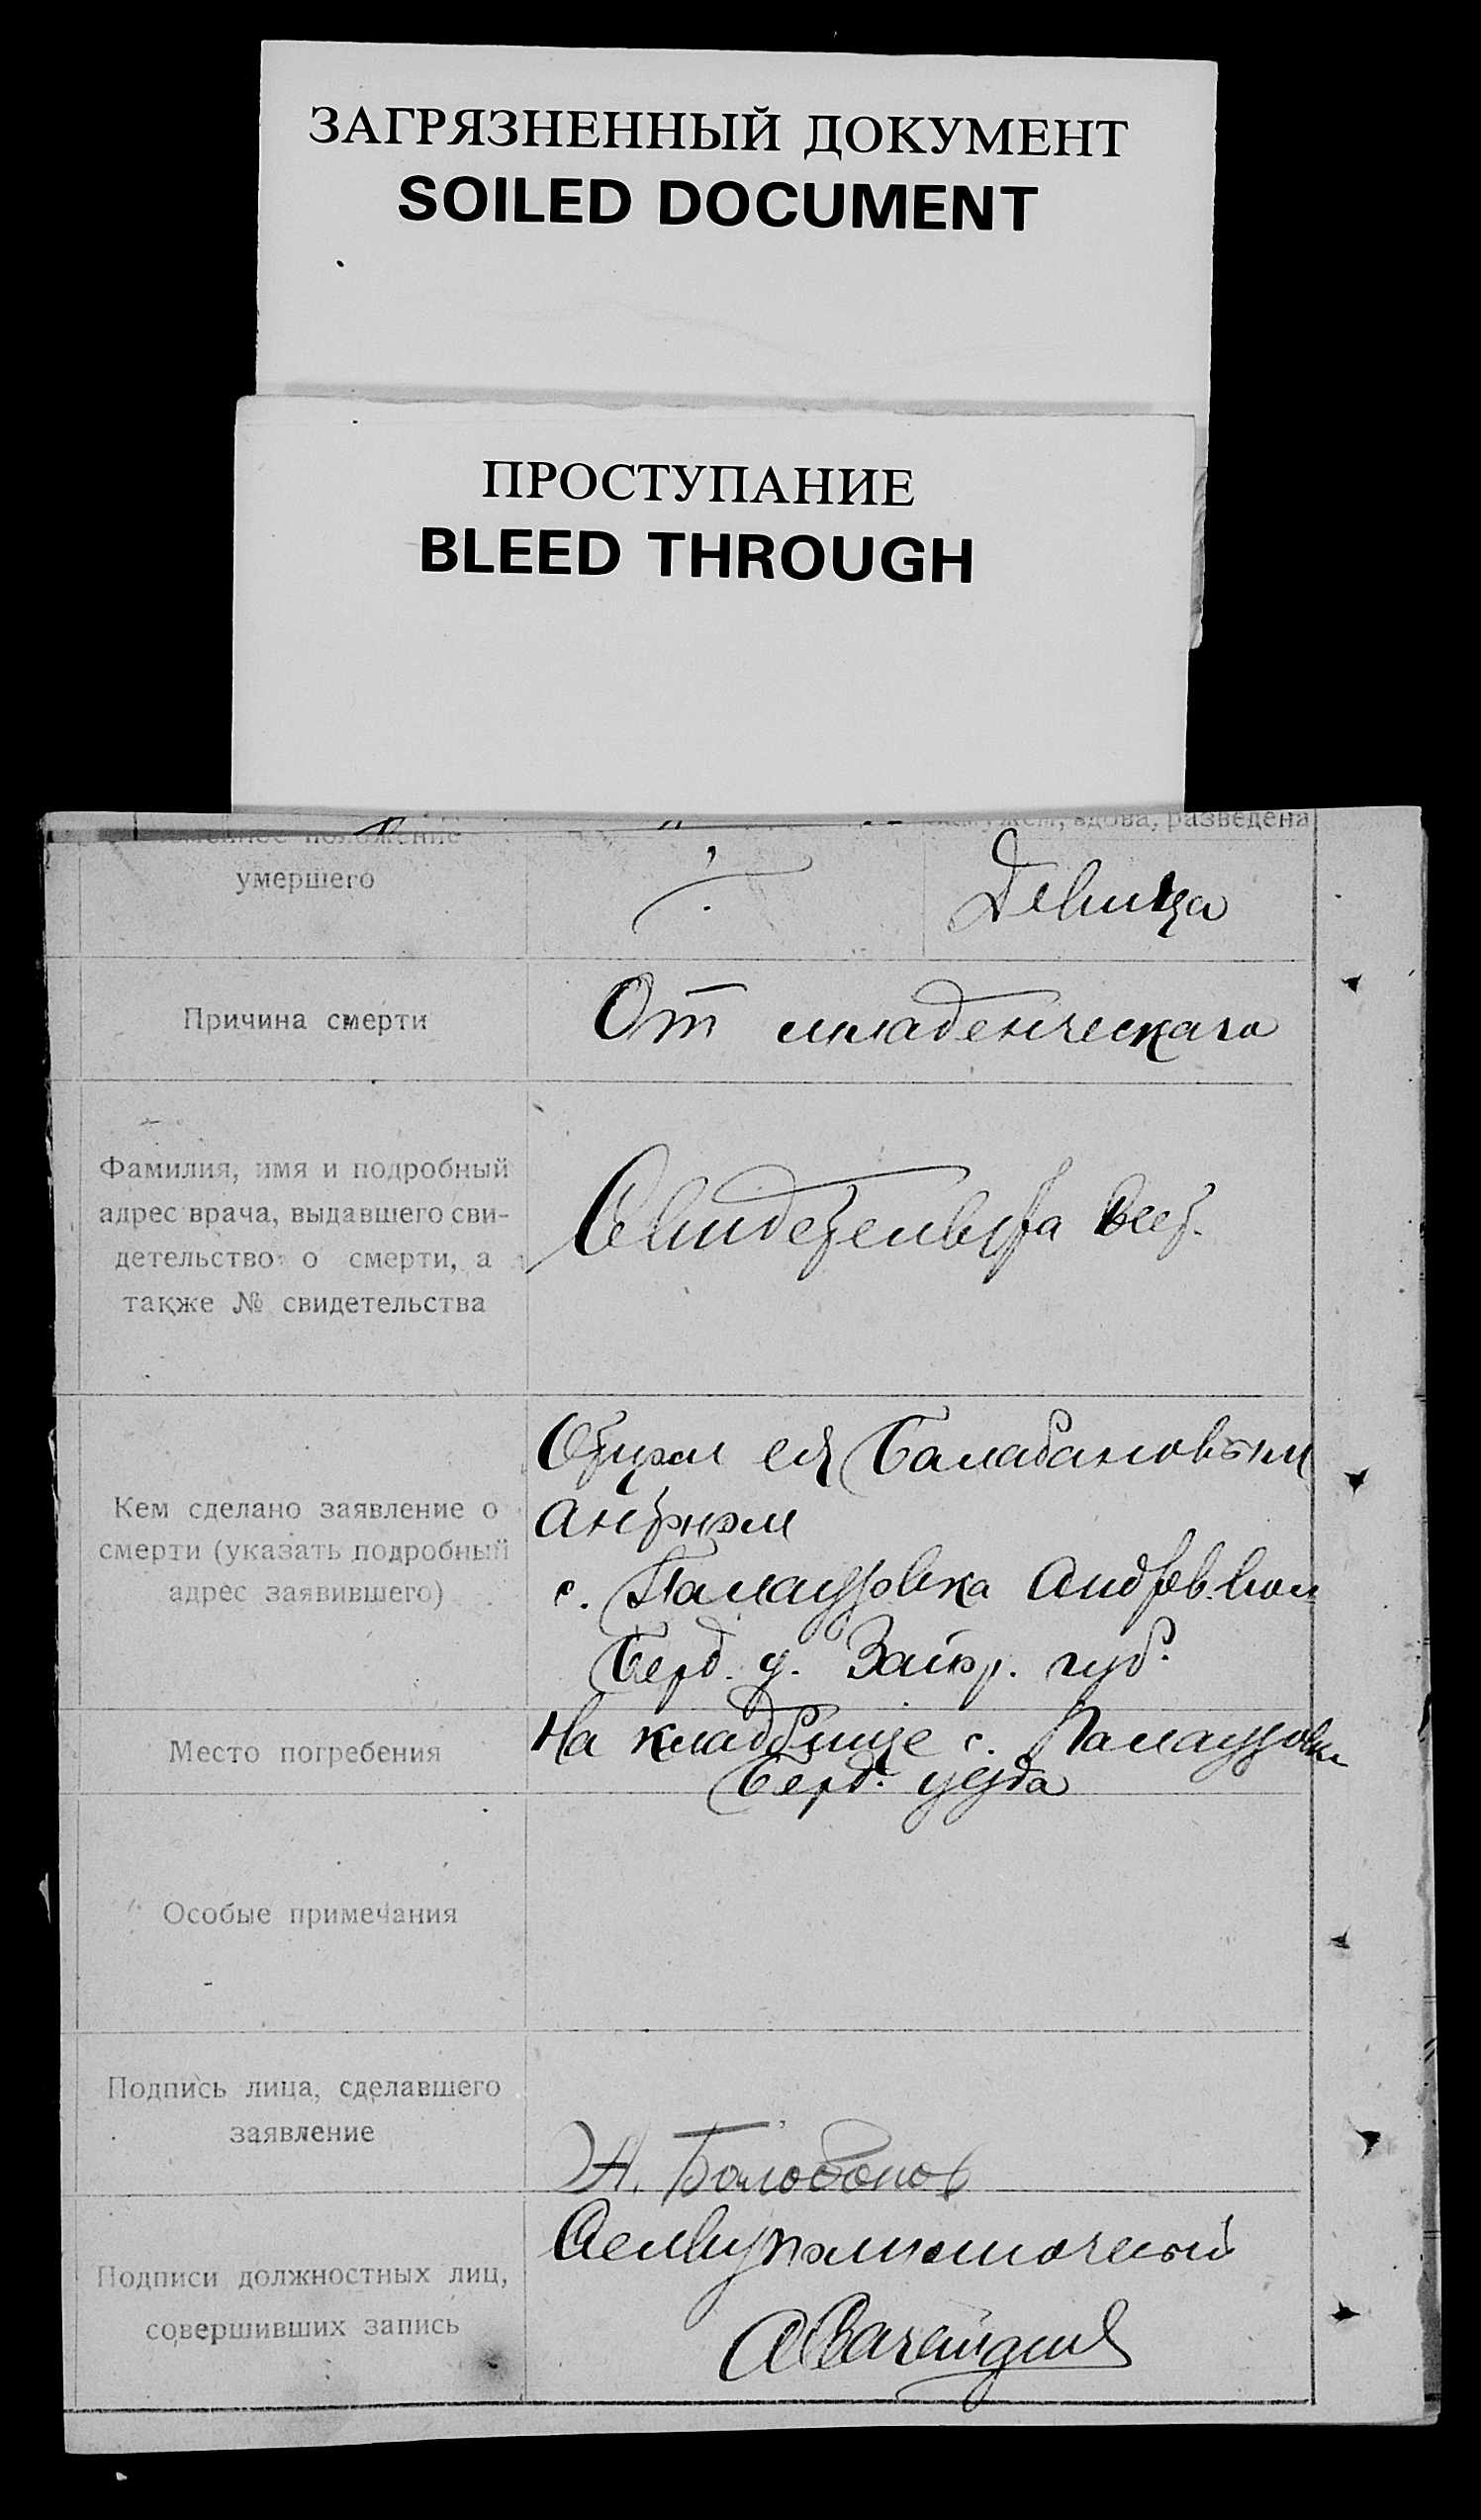 ЗАГРЯЗНЕННЫЙ ДОКУМЕНТ
SOILED DOCUMENT
ПРОСТУПАНИЕ
BLEED THROUGH
положение
вдова, разведена
умершего
Девица
Причина смерти
От младенческаго
Фамилия, имя и подробный
адрес врача, выдавшего сви-
детельство о смерти, а
также № свидетельства
Свидетельства
Кем сделано заявление о
смерти (указать подробный
адрес заявившего)
Отцом ея Балабановым
с. Андров. вол
Берд. у. Запор. губ.
Место погребения
На кладбище с.
Берд. уезда
Особые примечания
Подпись лица, сделавшего
заявление
Подписи должностных лиц,
совершивших запись